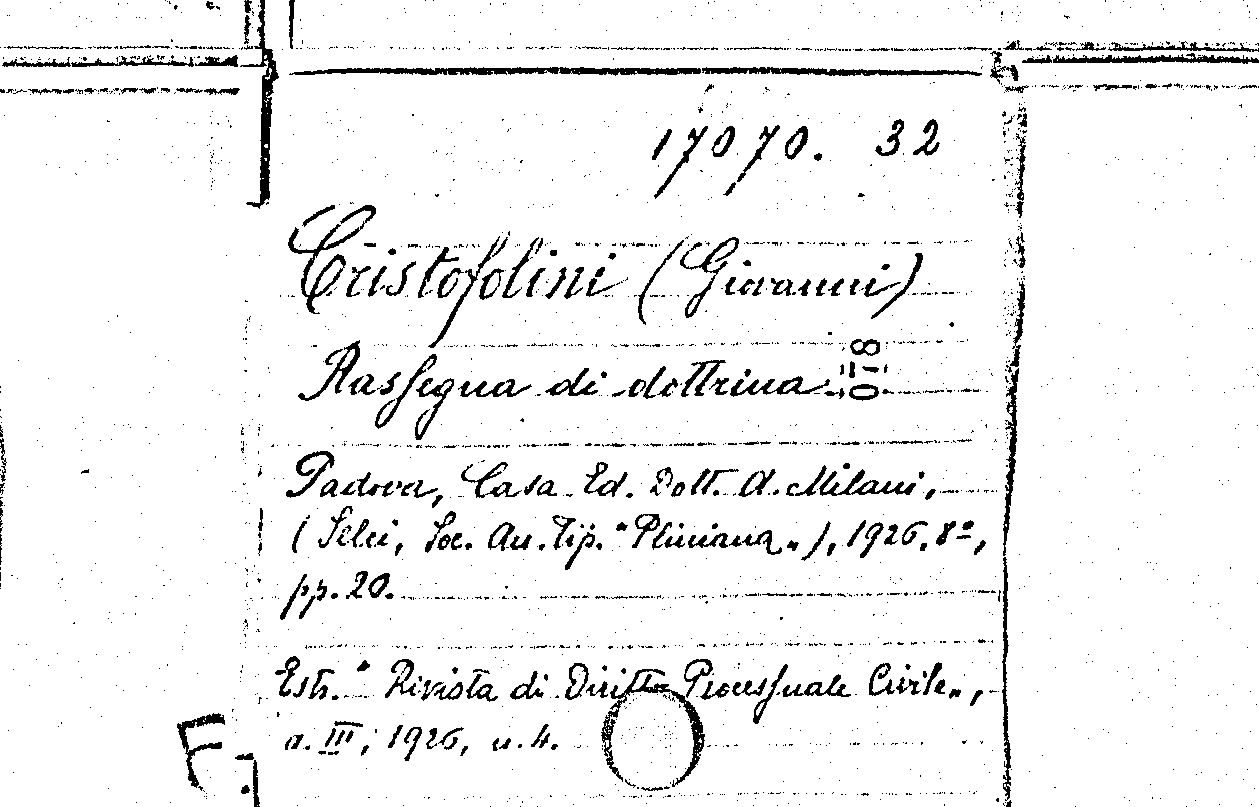 17070. 32
Cristofolini (Giovanni)
Rassegna di dottrina.
018
Padova, Casa Ed. Dott. A. Milani,
(Selci, Soc. An. Tip. "Pliniana„), 1926. 8º,
pp. 20.
Estr. "Rivista di Diritto Processuale Civile„,
a. III, 1926, n. 4.
F.